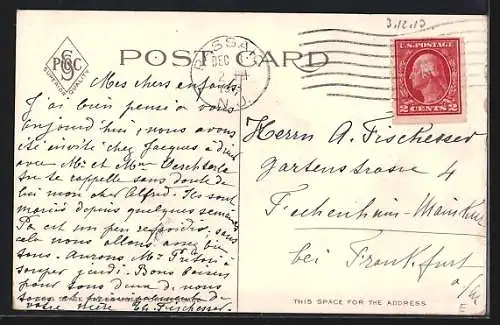 3.12.13
POST CARD
PCSC
SUPERIOR QUALITY
PASSAIC
DEC
2
N.J.
U.S. POSTAGE
2 CENTS 2
Mes chers enfants
J'ai bien pensé a vous
aujourd'hui, nous avons
été invité chez Jacques a diner
avec Mr et Mme
tu te rappelle sans doute de
lui mon cher Alfred. Ils sont
mariés depuis quelques semaines
Pa est un peu refroidi, sans
cela nous allons assez bien
tous. Aurons Mr
souper jeudi. Bons baisers
pour tous deux d. nous
tous
votre mère Fischesser
Herrn A. Fischesser
Gartenstrasse 4
Fechenheim-Mainkur
bei Frankfurt
a/M
THIS SPACE FOR THE ADDRESS